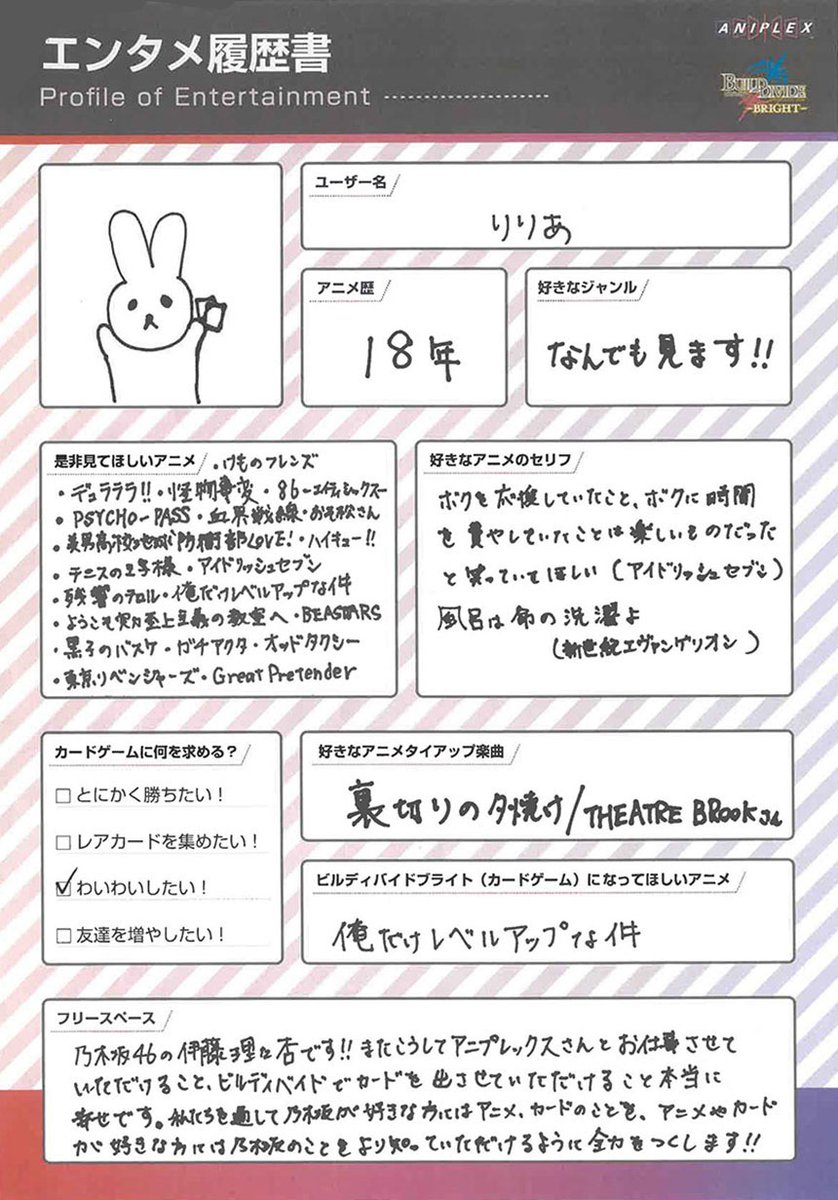 エンタメ履歴書
Profile of Entertainment
ANIPLEX
BUILD DIVIDE
-BRIGHT-
ユーザー名
りりあ
アニメ歴
18年
好きなジャンル
なんでも見ます!!
是非見てほしいアニメ
・けものフレンズ
・デュラララ!!・怪物事変・86-エイティシックス-
・PSYCHO-PASS・血界戦線・おそ松さん
・美男高校地球防衛部LOVE!・ハイキュー!!
・テニスの王子様・アイドリッシュセブン
・残響のテロル・俺だけレベルアップな件
・ようこそ実力至上主義の教室へ・BEASTARS
・黒子のバスケ・ガチアクタ・オッドタクシー
・東京リベンジャーズ・Great Pretender
好きなアニメのセリフ
ボクを応援していたこと、ボクに時間
を費やしていたことは楽しいものだった
と笑っていてほしい(アイドリッシュセブン)
風呂は命の洗濯よ
(新世紀エヴァンゲリオン)
カードゲームに何を求める？
とにかく勝ちたい！
レアカードを集めたい！
わいわいしたい！
友達を増やしたい！
好きなアニメタイアップ楽曲
裏切りの夕焼け/THEATRE BROOK
ビルディバイドブライト（カードゲーム）になってほしいアニメ
俺だけレベルアップな件
フリースペース
乃木坂46の伊藤理々杏です!!またこうしてアニプレックスさんとお仕事させて
いただけること、ビルディバイドでカードを出させていただけること本当に
幸せです。私たちを通して乃木坂が好きな方にはアニメ、カードのことを、アニメやカード
が好きな方には乃木坂のことをより知っていただけるように全力をつくします!!